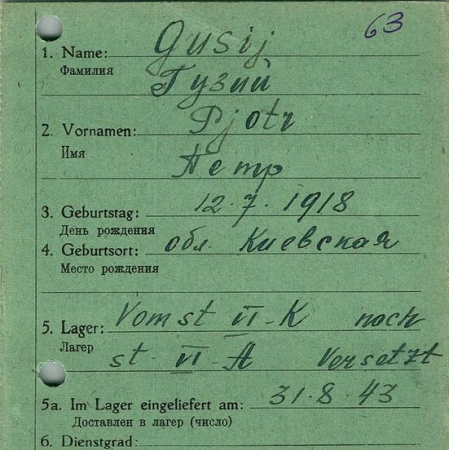 63
1. Name: Gusij
Фамилия Гузий
2. Vornamen: Pjotr
Имя Петр
3. Geburtstag: 12.7.1918
День рождения
4. Geburtsort: обл. Киевская
Место рождения
5. Lager: Vom st VI-K nach
Лагерь st. VI-A Versetzt
5a. Im Lager eingeliefert am: 31.8.43
Доставлен в лагер (число)
6. Dienstgrad: